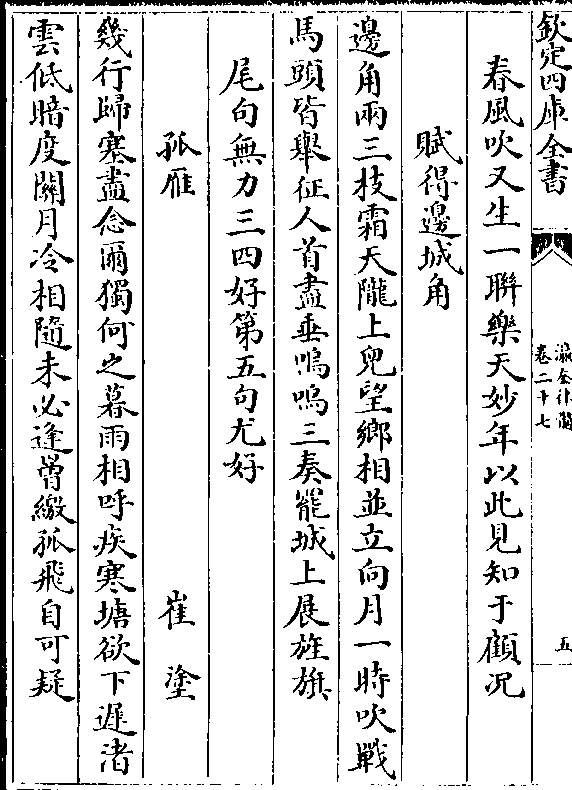 欽定四庫全書
瀛奎律髓
卷二十七
五
春風吹又生一聯樂天妙年以此見知于顧况
賦得邊城角
邊角兩三枝霜天隴上兒望鄉相並立向月一時吹戰
馬頭皆舉征人首盡垂嗚嗚三奏罷城上展旌旗
尾句無力三四好第五句尤好
孤雁 崔塗
幾行歸塞盡念爾獨何之暮雨相呼疾寒塘欲下遲渚
雲低暗度關月冷相隨未必逢矰繳孤飛自可疑